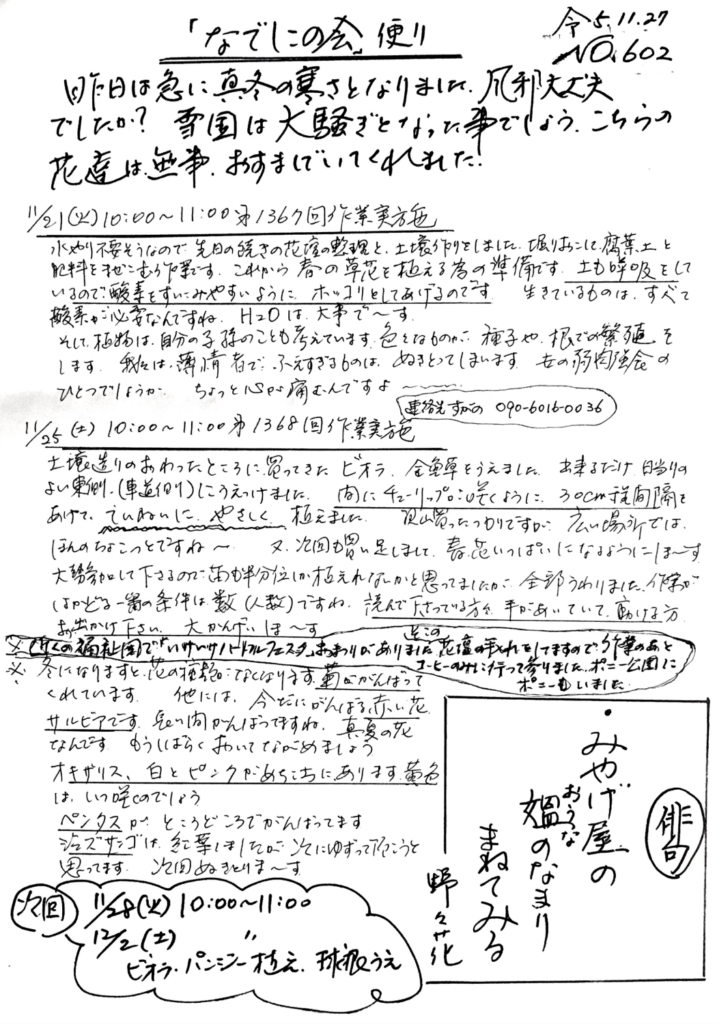 「なでしこの会」便り
令5.11.27
NO.602
昨日は急に真冬の寒さとなりました。風邪大丈夫
でしたか? 雪国は大騒ぎとなった事でしょう。こちらの
花達は無事、おすましでいてくれました。
11/21(火)10:00〜11:00第1367回作業実施
水やり不要そうなので、先日の続きの花壇の整理と、土壌作りをしました。堀りおこして、腐葉土と
肥料をまぜこむ作業です。これから春の草花を植える為の準備です。土も呼吸をして
いるので酸素をすいこみやすいように ホッコリとしてあげるのです。 生きているものは、すべて
酸素が必要なんですね。H2Oは、大事で〜す。
そして、植物は、自分の子孫のことも考えています。色々なものが、種子や、根での繁殖を
します。私たちは、薄情者で、ふえすぎるものは、ぬきとってしまいます。世の弱肉強食の
ひとつでしょうか。 ちょっと心が痛むんですよ〜
連絡先すがの 090-6016-0036
11/25(土)10:00〜11:00第1368回作業実施
土壌造りのおわったところに、買ってきた ビオラ、金魚草をうえました。出来るだけ日当りの
よい東側、(車道側)にうえつけました。間にチューリップが咲くように、30cm程間隔を
あけて、ていねいに、やさしく 植えました。沢山買ったつもりですが、広い場所では、
ほんのちょこっとですね〜 又、次回も買い足しまして、春、花いっぱいになるようにしま〜す。
大勢参加して下さるので、苗も半分位しか植えれないかと思ってましたが、全部うわりました。作業が
はかどる一番の条件は、数(人数)ですね。読んで下さっている方々、手があいていて、動ける方
お出かけ下さい。大かんげいしま〜す
※近くの福祉園で"いけいけハートフルフェスタ"おまつりがありました。そこの花壇の手入れをしてますので、作業のあと
コーヒーのみに行って参りました。ポニー公園に
ポニーもいました
※冬になりますと、花の種類がなくなります。菊ががんばって
くれています。 他には、今だにがんばる赤い花
サルビアです。長い間がんばってますね。真夏の花
なんです もうしばらくおいてながめましょう
オキザリス、白とピンクがあちこちにあります。黄色
は、いつ咲くのでしょう
ペンタスが、ところどころでがんばってます
ジュズサンゴは、紅葉しましたが、次にゆずって下さろうと
思ってます。 次回ぬきとりま〜す。
俳句
・みやげ屋の
媼のなまり
おうな
まねてみる
野々花
次回
11/28(火)10:00〜11:00
12/2(土) 〃
ビオラ・パンジー植え、球根うえ